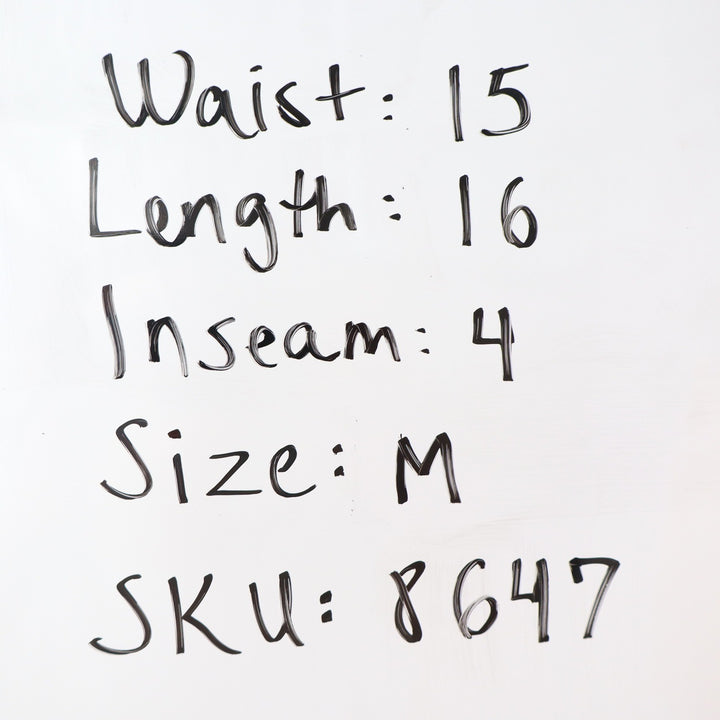 Waist: 15
Length: 16
Inseam: 4
Size: M
SKU: 8647